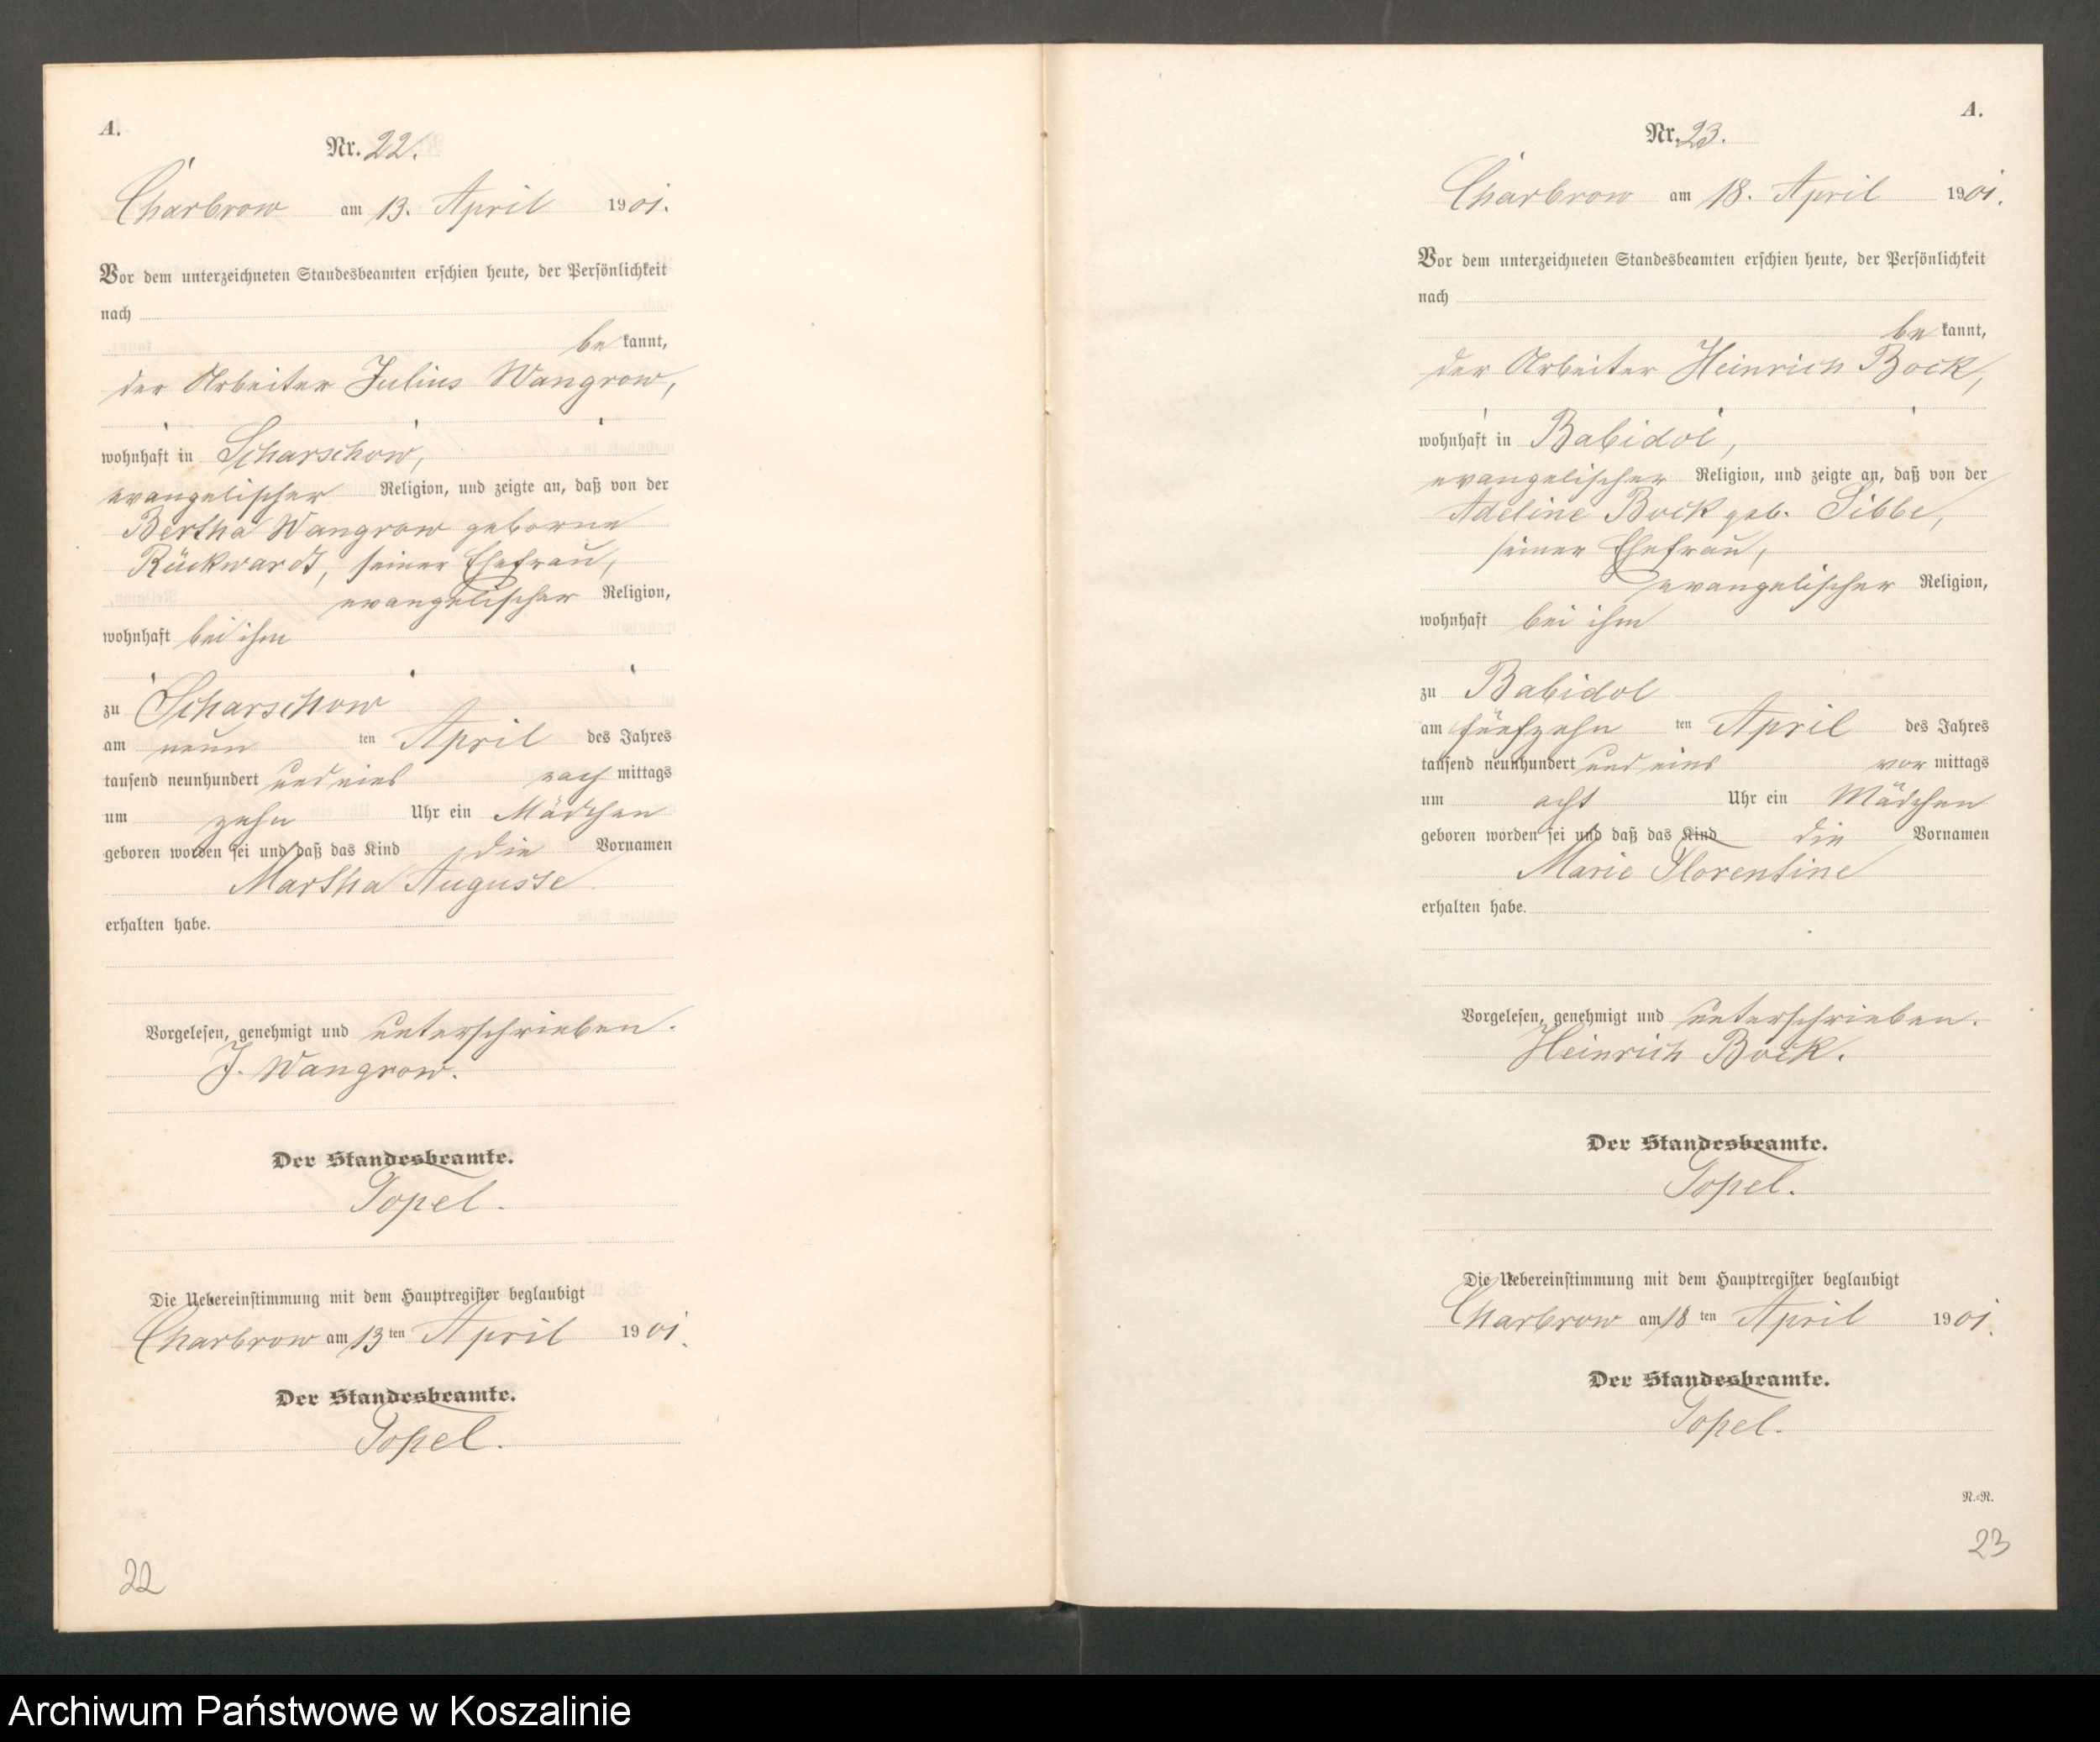 A.
Nr. 22.
Charbrow am 13. April 1901.
Vor dem unterzeichneten Standesbeamten erschien heute, der Persönlichkeit
nach
be kannt,
der Arbeiter Julius Wangrow,
wohnhaft in Scharschow,
evangelischer Religion, und zeigte an, daß von der
Bertha Wangrow geborne
Rückwardt, seiner Ehefrau,
evangelischer Religion,
wohnhaft bei ihm
zu Scharschow
am neun ten April des Jahres
tausend neunhundert und eins nach mittags
um zehn Uhr ein Mädchen
geboren worden sei und daß das Kind die Vornamen
Martha Auguste
erhalten habe.
Vorgelesen, genehmigt und unterschrieben.
J. Wangrow.
Der Standesbeamte.
Topel.
Die Uebereinstimmung mit dem Hauptregister beglaubigt
Charbrow am 13 ten April 1901.
Der Standesbeamte.
Topel.
22
A.
Nr. 23.
Charbrow am 18. April 1901.
Vor dem unterzeichneten Standesbeamten erschien heute, der Persönlichkeit
nach
be kannt,
der Arbeiter Heinrich Bock,
wohnhaft in Babidol,
evangelischer Religion, und zeigte an, daß von der
Adeline Bock geb. Sibbe,
seiner Ehefrau,
evangelischer Religion,
wohnhaft bei ihm
zu Babidol
am fünfzehn ten April des Jahres
tausend neunhundert und eins vor mittags
um acht Uhr ein Mädchen
geboren worden sei und daß das Kind die Vornamen
Marie Florentine
erhalten habe.
Vorgelesen, genehmigt und unterschrieben.
Heinrich Bock.
Der Standesbeamte.
Topel.
Die Uebereinstimmung mit dem Hauptregister beglaubigt
Charbrow am 18 ten April 1901.
Der Standesbeamte.
Topel.
N.-R.
23
Archiwum Państwowe w Koszalinie